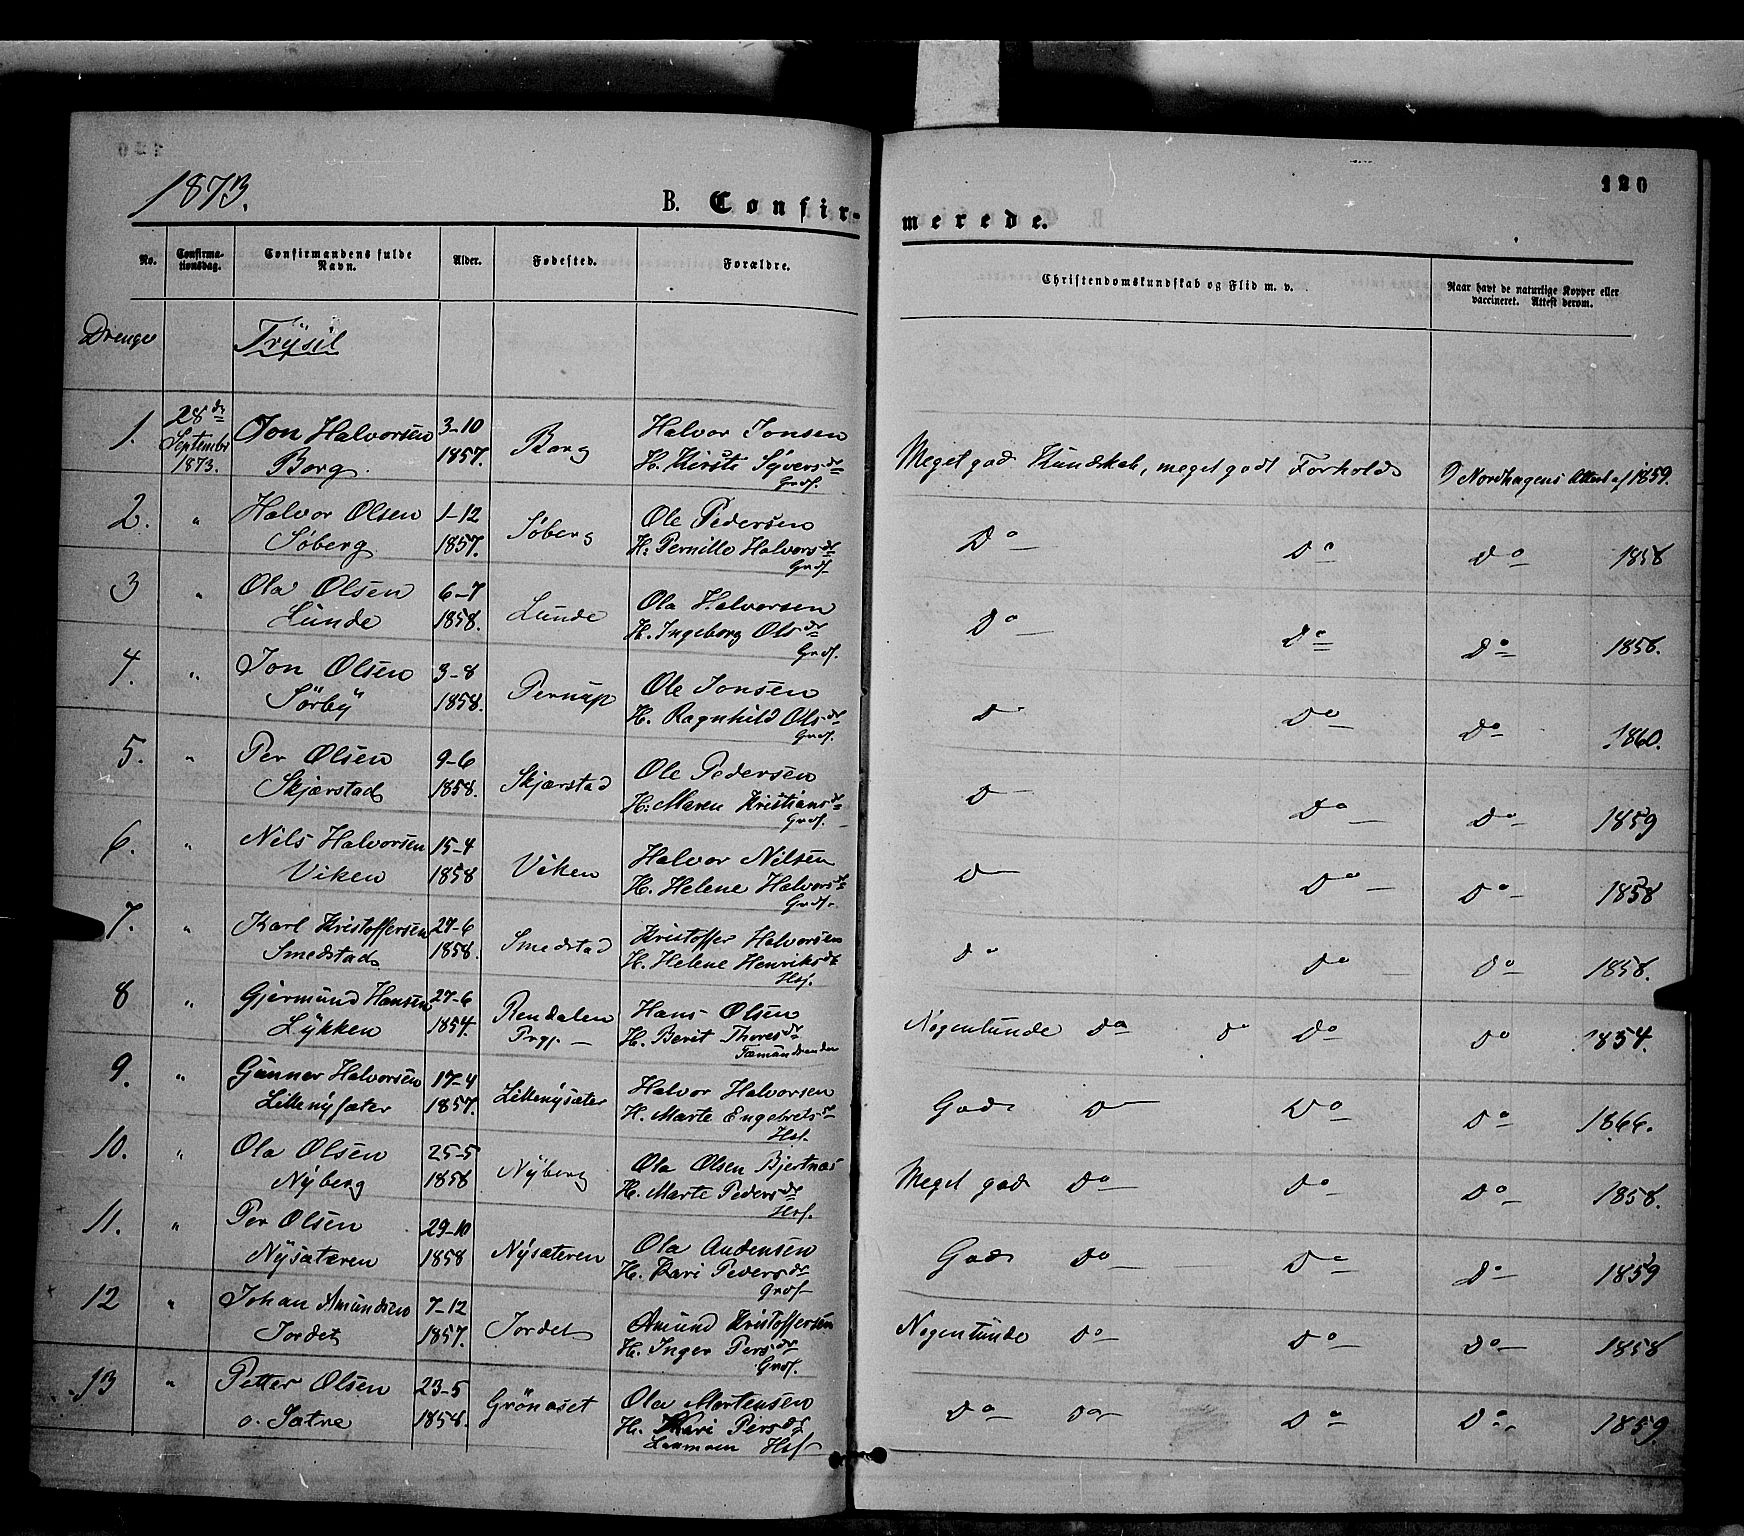 120
1873.
B. Confir-
merede.
No.
Confirma-
tionsdag.
Confirmandens fulde
Navn.
Alder.
Fødested.
Forældre.
Christendomskundskab og Flid m. v.
Naar havt de naturlige Kopper eller
vaccineret. Attest derom.
Drenge
Trysil
1. 28de Jon Halvorsen 3-10 Borg Halvor Jonsen Meget god Kundskab, meget godt Forhold Nordhagens Attest af 1859.
September Borg. 1857. H. Kirsti Syversdr
1873. Grdf.
2. " Halvor Olsen 1-12 Søberg Ole Pedersen Do Do Do 1858
Søberg 1857. H. Pernille Halvorsdr
Grdf.
3 " Ola Olsen 6-7 Lunde Ola Halvorsen Do Do Do 1858.
Lunde 1858. H. Ingeborg Olsdr
Grdf.
4. " Jon Olsen 3-8 Pernup Ole Jonsen Do Do Do 1860.
Sörby 1858. H. Ragnhild Olsdr
Grdf.
5. " Per Olsen 9-6 Skjærstad Ole Pedersen Do Do Do 1859
Skjærstad 1858. H. Maren Kristiansdr
Grdf.
6. " Nils Halvorsen 15-4 Viken Halvor Nilsen Do Do Do 1858
Viken 1858 H. Helene Halvorsdr
Grdf.
7. " Karl Kristoffersen 27-6 Smedstad Kristoffer Halvorsen Do Do Do 1858.
Smedstad 1858. H. Helene Henriksdr
Hsf.
8 " Gjermund Hansen 27-6 Rendalen Hans Olsen Nogenlunde Do do Do Do 1854.
Lykken 1854. Prgj. H. Berit Thoresdr
Fæmundsenden
9. " Gunner Halvorsen 17-4 Lillenysæter Halvor Halvorsen God Do Do Do 1866.
Lillenysæter 1857. H. Marte Engebretsdr
Hsf.
10. " Ola Olsen 25-5 Nyberg Ola Olsen Bjertnæs Meget god Do Do Do 1858.
Nyberg 1858 H. Marte Pedersdr
Hsf.
11. " Per Olsen 29-10 Nysæteren Ola Andensen God Do Do Do 1859
Nysæteren 1858 H. Kari Pedersdr
Grdf
12 " Johan Amundsen 7-12 Jordet Amund Kristoffersen Nogenlunde Do Do Do 1858
Jordet 1857. H. Inger Persdr
Grdf.
13 " Petter Olsen 23-5 Grönoset Ola Mortensen Do Do Do Do 1859.
o. Sætre 1858. H. Kari Persdr
Hsf